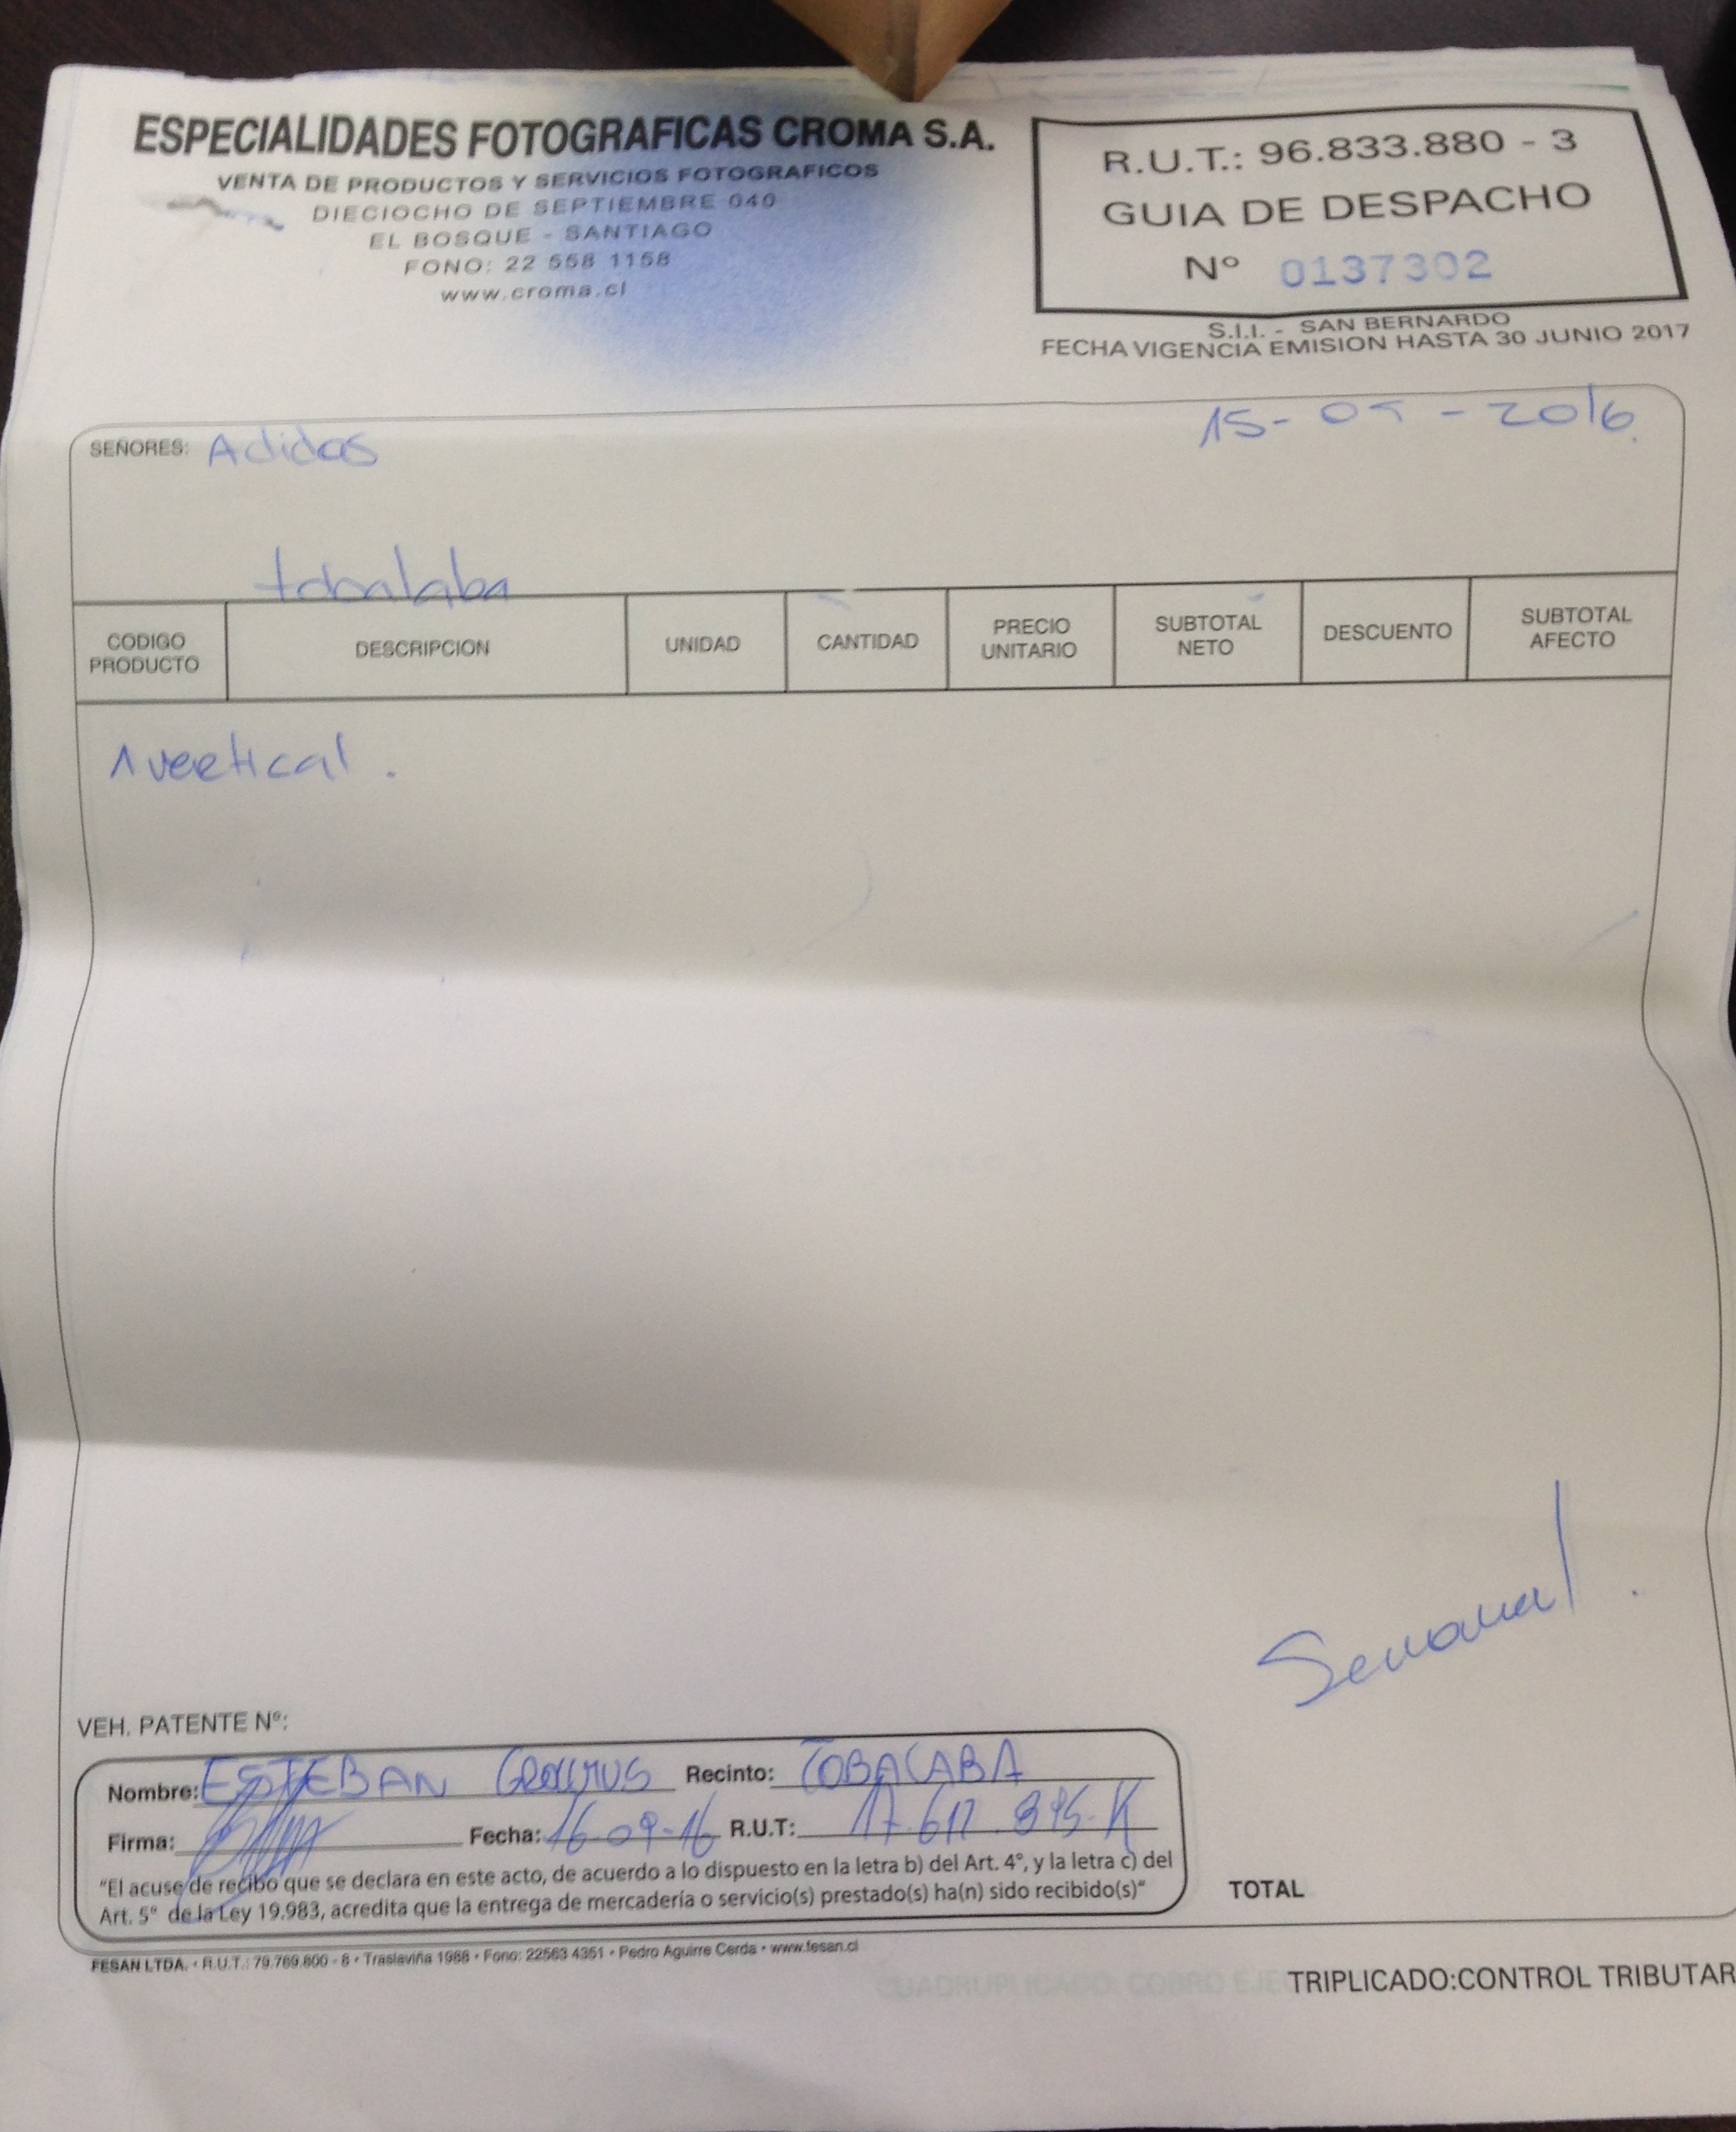 ESPECIALIDADES FOTOGRAFICAS CROMA S.A.
VENTA DE PRODUCTOS Y SERVICIOS FOTOGRAFICOS
DIECIOCHO DE SEPTIEMBRE 040
EL BOSQUE - SANTIAGO
FONO: 22 558 1158
www.croma.cl
R.U.T.: 96.833.880 - 3
GUIA DE DESPACHO
Nº 0137302
S.I.I. - SAN BERNARDO
FECHA VIGENCIA EMISION HASTA 30 JUNIO 2017
SEÑORES: Adidas 15-09-2016
tobalaba
CODIGO PRODUCTO DESCRIPCION UNIDAD CANTIDAD PRECIO UNITARIO SUBTOTAL NETO DESCUENTO SUBTOTAL AFECTO
1 vertical.
VEH. PATENTE Nº:
Nombre: ESTEBAN Recinto: TOBALABA
Firma: Fecha: 16-09-16 R.U.T:
"El acuse de recibo que se declara en este acto, de acuerdo a lo dispuesto en la letra b) del Art. 4°, y la letra c) del
Art. 5° de la Ley 19.983, acredita que la entrega de mercadería o servicio(s) prestado(s) ha(n) sido recibido(s)"
TOTAL
FESAN LTDA. • R.U.T.: 79.769.800 - 8 • Traslaviña 1986 • Fono: 22563 4351 • Pedro Aguirre Cerda • www.fesan.cl
CUADRUPLICADO: COBRO EJE
TRIPLICADO:CONTROL TRIBUTAR